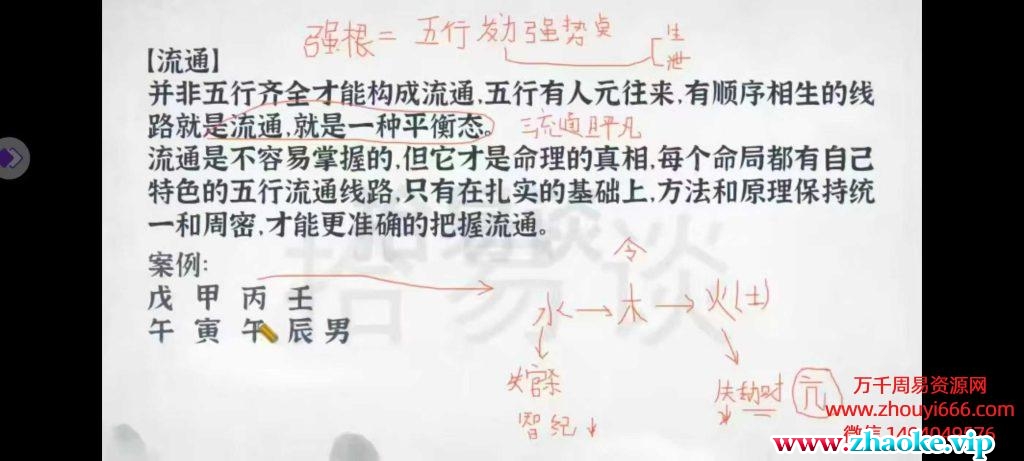 强根 = 五行发力强势点
生
泄
【流通】
并非五行齐全才能构成流通,五行有人元往来,有顺序相生的线
路就是流通,就是一种平衡态。
流通且平凡
流通是不容易掌握的,但它才是命理的真相,每个命局都有自己
特色的五行流通线路,只有在扎实的基础上,方法和原理保持统
一和周密,才能更准确的把握流通。
案例:
令
戊 甲 丙 壬
水→木→火(土)
午 寅 午 辰 男
失官杀
失劫财 亢
智纪
拾易谈
万千周易资源网
www.zhouyi666.com
www.zhaoke.vip